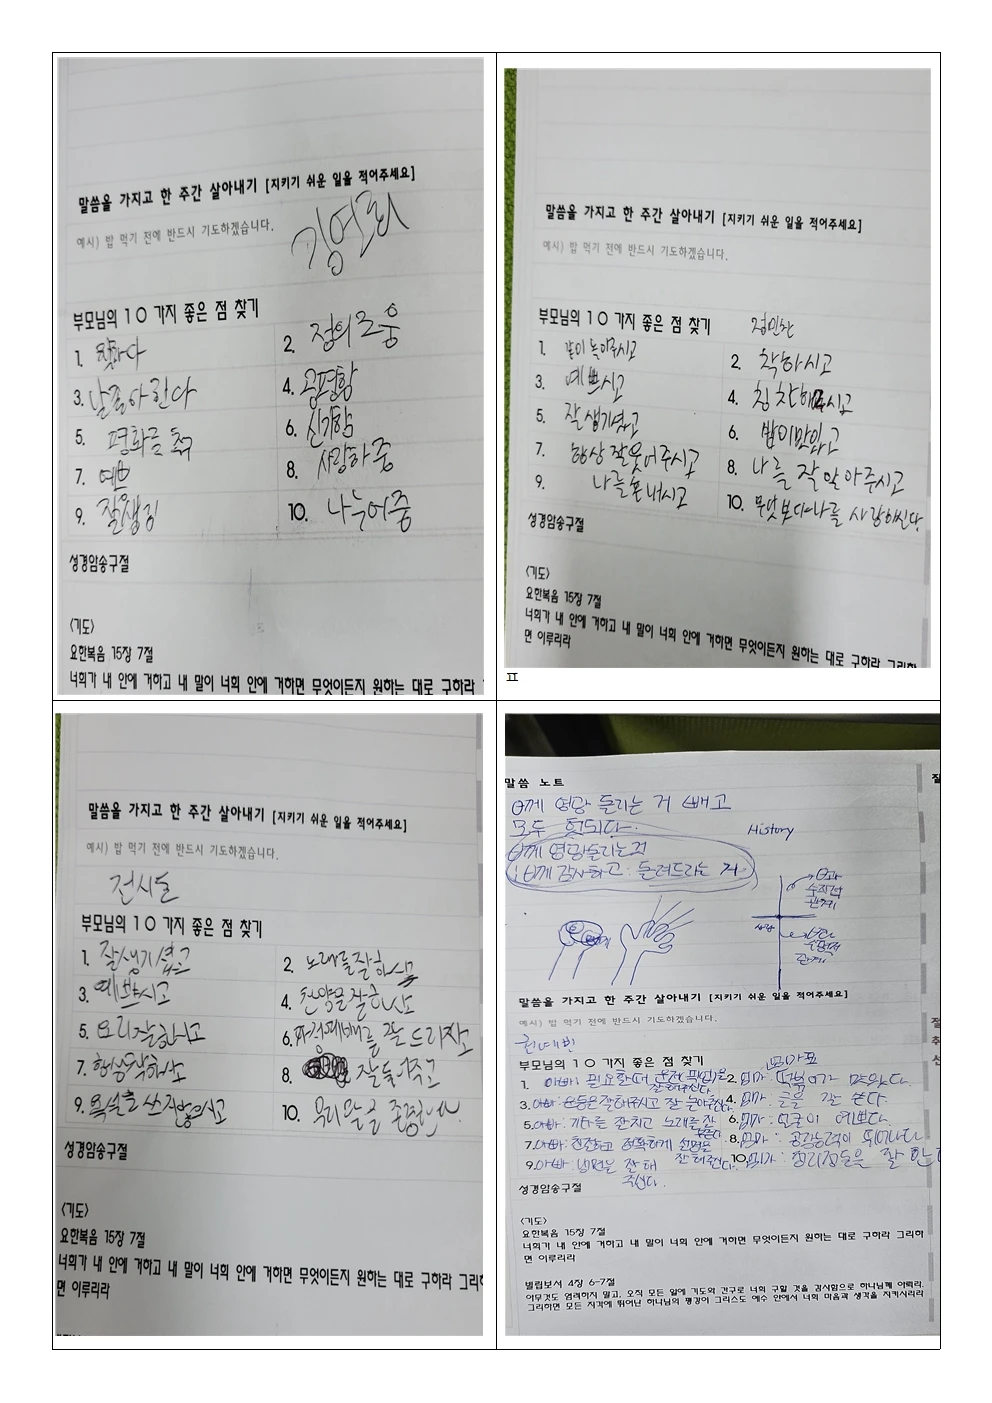 말씀을 가지고 한 주간 살아내기 [지키기 쉬운 일을 적어주세요]
예시) 밥 먹기 전에 반드시 기도하겠습니다.
부모님의 10 가지 좋은 점 찾기
1. 착하다
2. 정의로움
3. 날 좋아한다
4. 공평함
5. 평화를 추구
6. 신기함
7. 예쁨
8. 사랑하중
9. 잘생김
10. 나누어중
성경암송구절
<기도>
요한복음 15장 7절
너희가 내 안에 거하고 내 말이 너희 안에 거하면 무엇이든지 원하는 대로 구하라
말씀을 가지고 한 주간 살아내기 [지키기 쉬운 일을 적어주세요]
예시) 밥 먹기 전에 반드시 기도하겠습니다.
부모님의 10 가지 좋은 점 찾기
1. 같이 놀아주시고
2. 착하시고
3. 예쁘시고
4. 칭찬해주시고
5. 잘생기셨고
6. 밥이맛있고
7. 항상 잘웃어주시고
8. 나를 잘 알아주시고
9. 나를혼내시고
10. 무엇보다 나를 사랑하신다
성경암송구절
<기도>
요한복음 15장 7절
너희가 내 안에 거하고 내 말이 너희 안에 거하면 무엇이든지 원하는 대로 구하라 그리하
면 이루리라
ㅍ
말씀을 가지고 한 주간 살아내기 [지키기 쉬운 일을 적어주세요]
예시) 밥 먹기 전에 반드시 기도하겠습니다.
부모님의 10 가지 좋은 점 찾기
1. 잘생기셨고
2. 노래를잘하심
3. 예쁘시고
4. 잘하시고
5. 요리잘하시고
6. 잘 드리시고
7. 행동
8. 잘
9. 욕설을 쓰지않으시고
10. 우리 말을 존중
성경암송구절
<기도>
요한복음 15장 7절
너희가 내 안에 거하고 내 말이 너희 안에 거하면 무엇이든지 원하는 대로 구하라 그리하
면 이루리라
말씀 노트
께 영광 돌리는 거 빼고
모두 헛되다.
께 영광돌리는것
께 감사하고 돌려드리는 거
History
수직적
관계
사람
수평적
관계
말씀을 가지고 한 주간 살아내기 [지키기 쉬운 일을 적어주세요]
예시) 밥 먹기 전에 반드시 기도하겠습니다.
권예빈
부모님의 10 가지 좋은 점 찾기
1. 아빠: 필요할때 운전(픽업)을 잘해주신다.
2. 엄마: 떡볶이가 맛있다.
3. 아빠: 운동은잘해주시고 잘 놀아주신다.
4. 엄마: 글을 잘 쓴다.
5. 아빠: 기타를 잘치고 노래를 잘
6. 엄마: 얼굴이 예쁘다.
7. 아빠: 친절하고 정확하게 설명을 잘 해주신다.
8. 엄마: 공감능력이 뛰어나다
9. 아빠: 잘 해 주신다.
10. 엄마: 정리정돈을 잘 한다
성경암송구절
<기도>
요한복음 15장 7절
너희가 내 안에 거하고 내 말이 너희 안에 거하면 무엇이든지 원하는 대로 구하라 그리하
면 이루리라
빌립보서 4장 6-7절
아무것도 염려하지 말고, 오직 모든 일에 기도와 간구로 너희 구할 것을 감사함으로 하나님께 아뢰라.
그리하면 모든 지각에 뛰어난 하나님의 평강이 그리스도 예수 안에서 너희 마음과 생각을 지키시리라